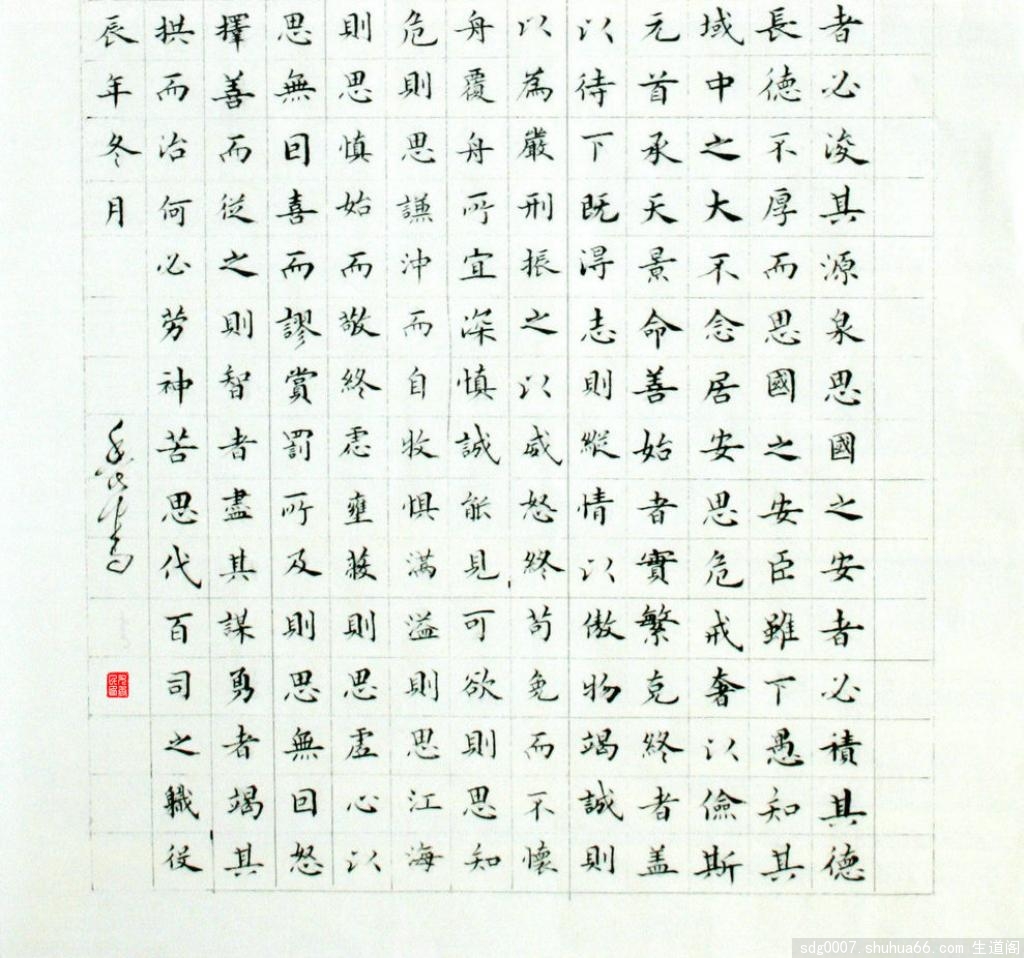 者必浚其源泉思國之安者必積其德
長德不厚而思國之安臣雖下愚知其
域中之大不念居安思危戒奢以儉斯
元首承天景命善始者實繁克終者盖
以待下既得志則縱情以傲物竭誠則
以為嚴刑振之以威怒終苟免而不懷
舟覆舟所宜深慎誠能見可欲則思知
危則思謙沖而自牧惧滿溢則思江海
則思慎始而敬終慮壅蔽則思虛心以
思無因喜而謬賞罰所及則思無因怒
擇善而從之則智者盡其謀勇者竭其
拱而治何必勞神苦思代百司之職役
辰年冬月
sdg0007.shuhua66.com 生道阁